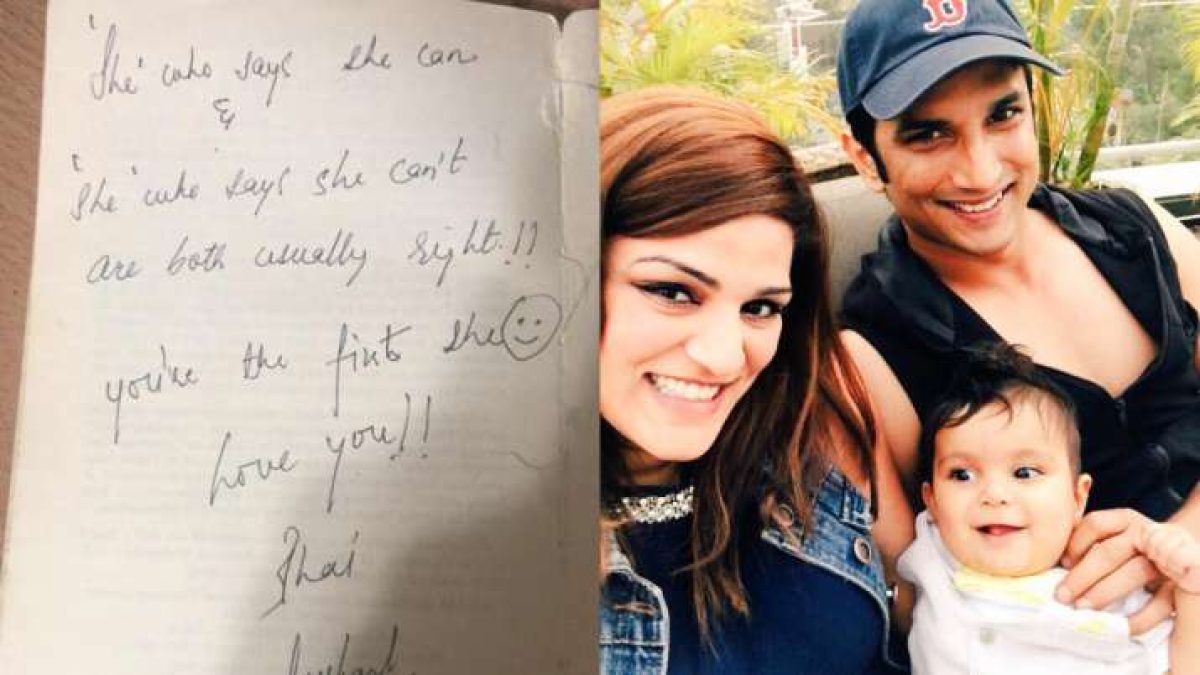 'She' who says she can
&
'She' who says she can't
are both usually right!!
you're the firts she
Love you!!
Bhai
B